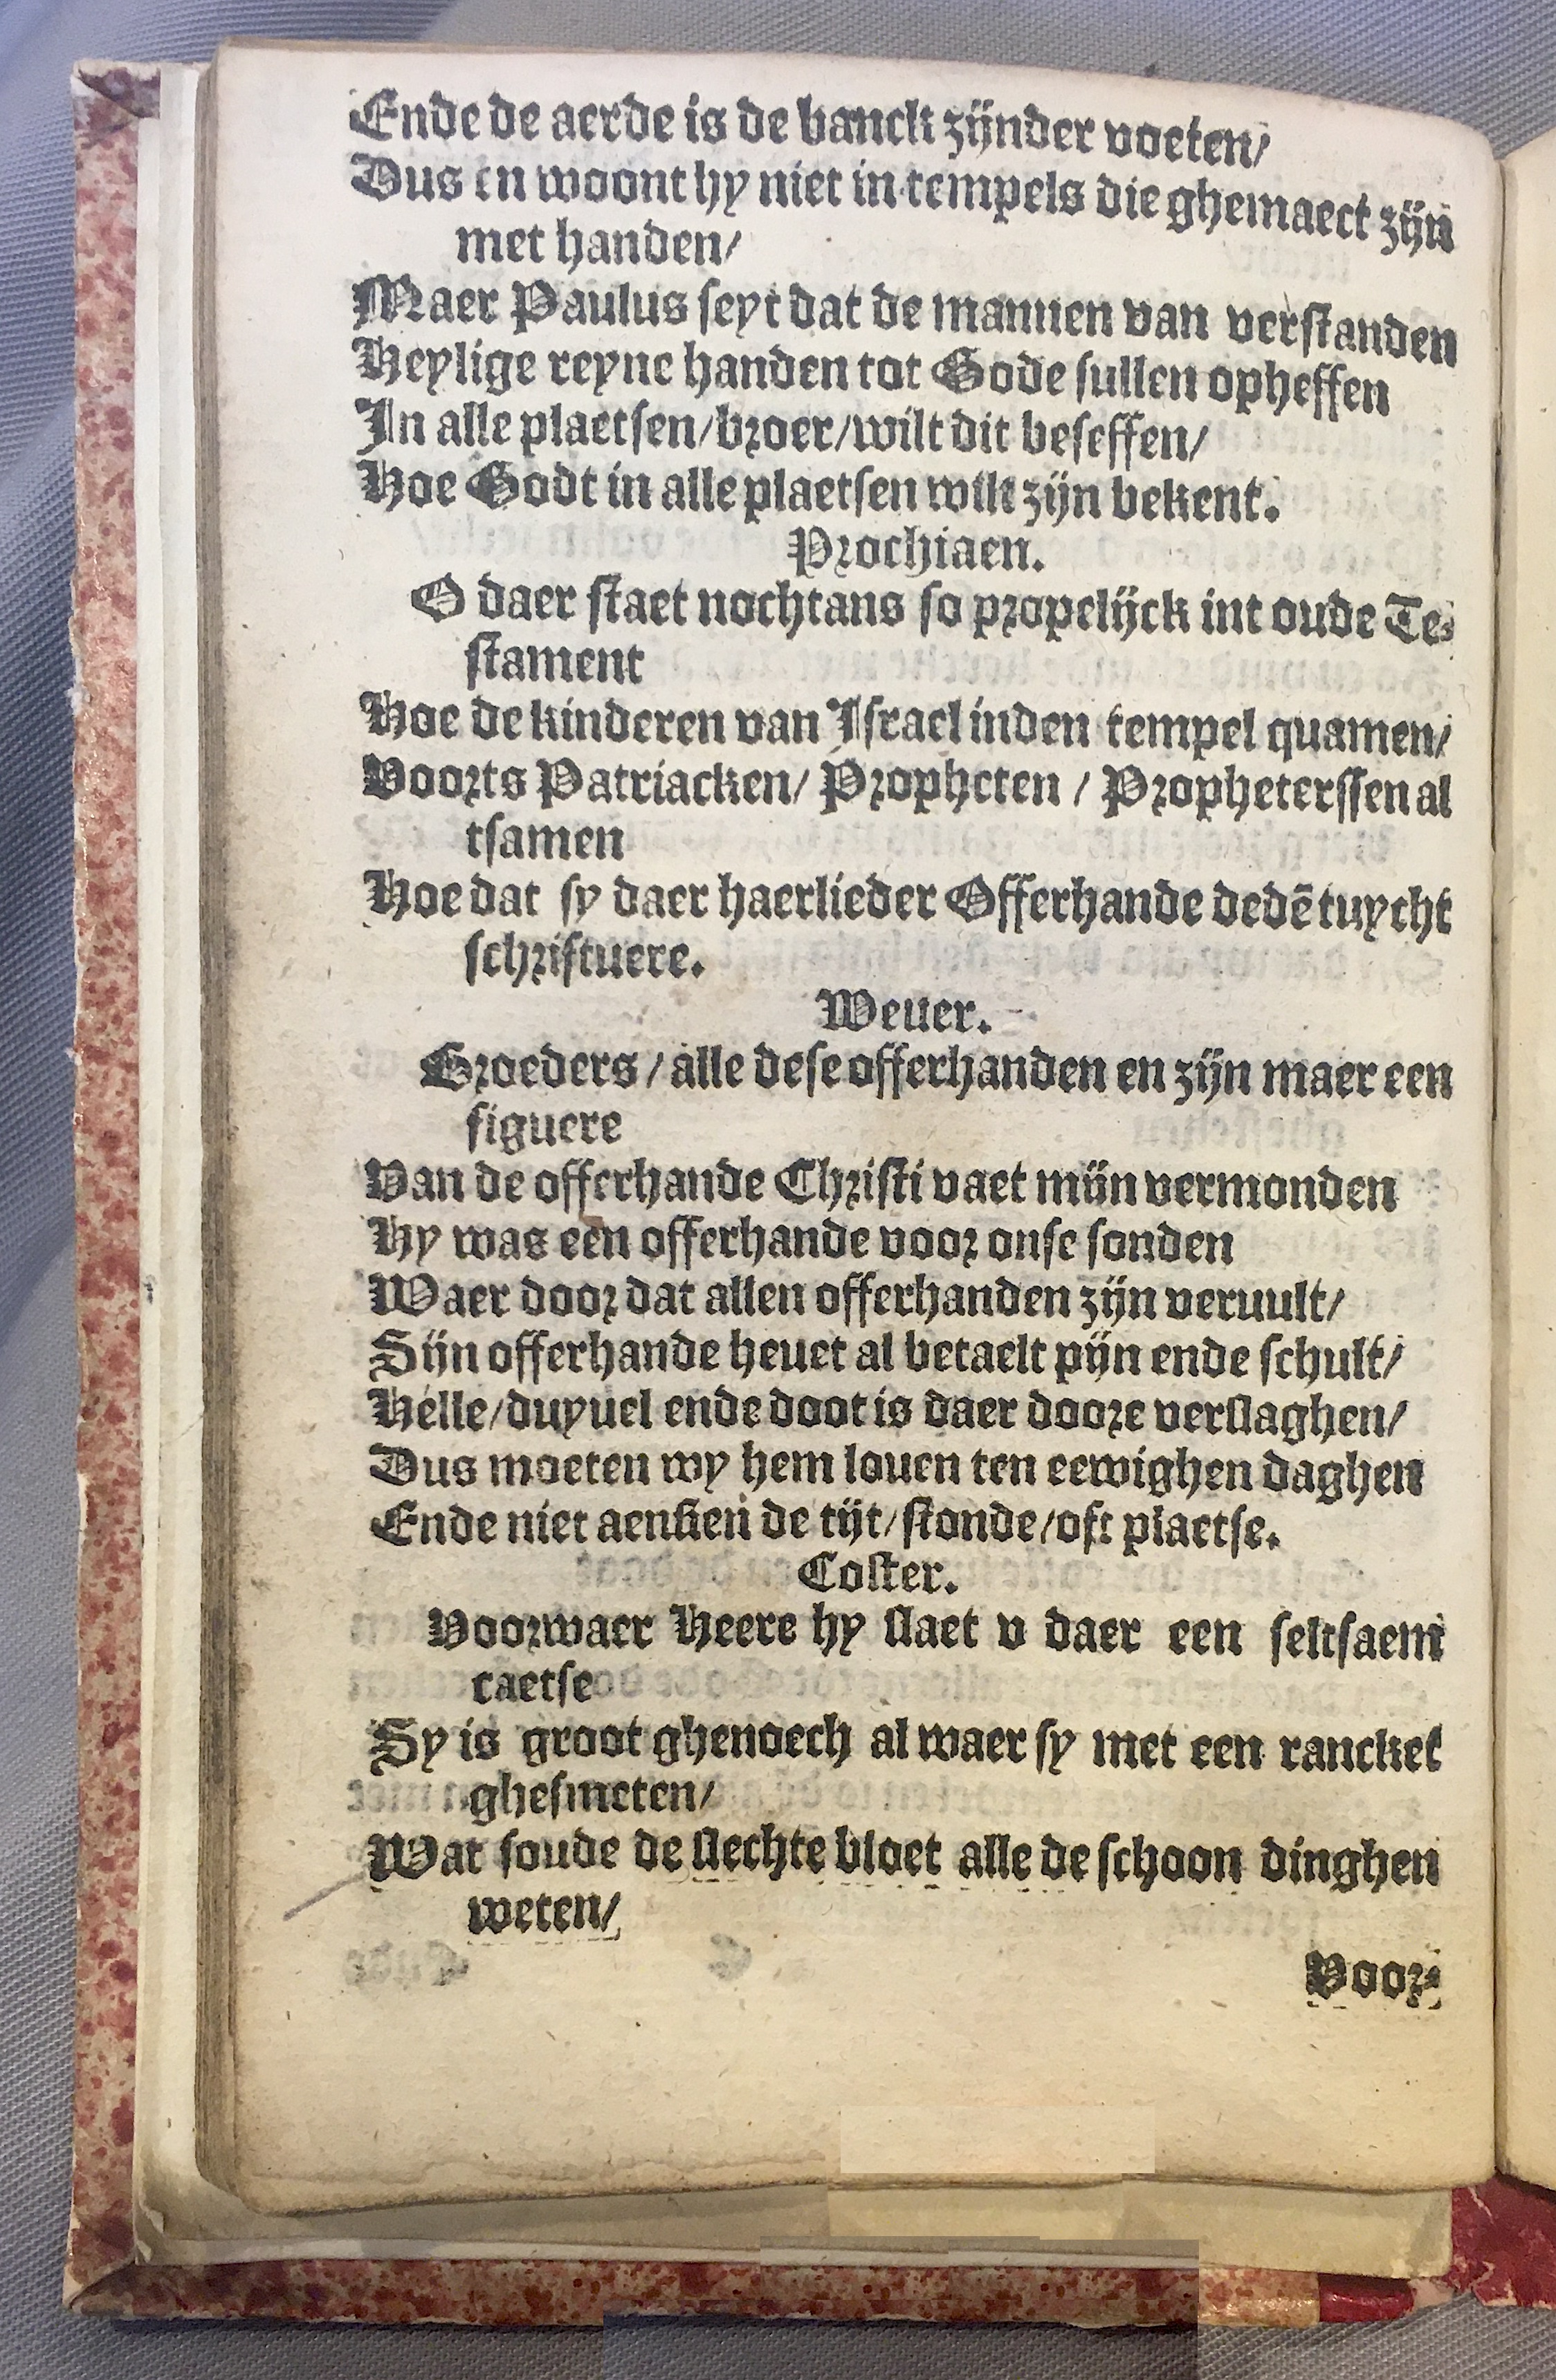 Ende de aerde is de banck zijnder voeten/
Dus en woont hy niet in tempels die ghemaect zijn
met handen/
Maer Paulus seyt dat de mannen van verstanden
Heylige reyne handen tot Gode sullen opheffen
In alle plaetsen/broer/wilt dit beseffen/
Hoe Godt in alle plaetsen wilt zijn bekent.
Prochiaen.
O daer staet nochtans so propelijck int oude Te-
stament
Hoe de kinderen van Israel inden tempel quamen/
Voorts Patriacken/ Propheten / Propheterssen al
tsamen
Hoe dat sy daer haerlieder Offerhande dedē tuycht
schriftuere.
Weuer.
Broeders / alle dese offerhanden en zijn maer een
figuere
Van de offerhande Christi vaet mijn vermonden
Hy was een offerhande voor onse sonden
Waer door dat allen offerhanden zijn veruult/
Sijn offerhande heuet al betaelt pijn ende schult/
Helle/duyuel ende doot is daer doore verslaghen/
Dus moeten wy hem louen ten eewighen daghen
Ende niet aensien de tijt/stonde/oft plaetse.
Coster.
Voorwaer Heere hy slaet v daer een seltsaem
caetse
Sy is groot ghenoech al waer sy met een rancket
ghesmeten/
Wat soude de slechte bloet alle de schoon dinghen
weten/
Voor-